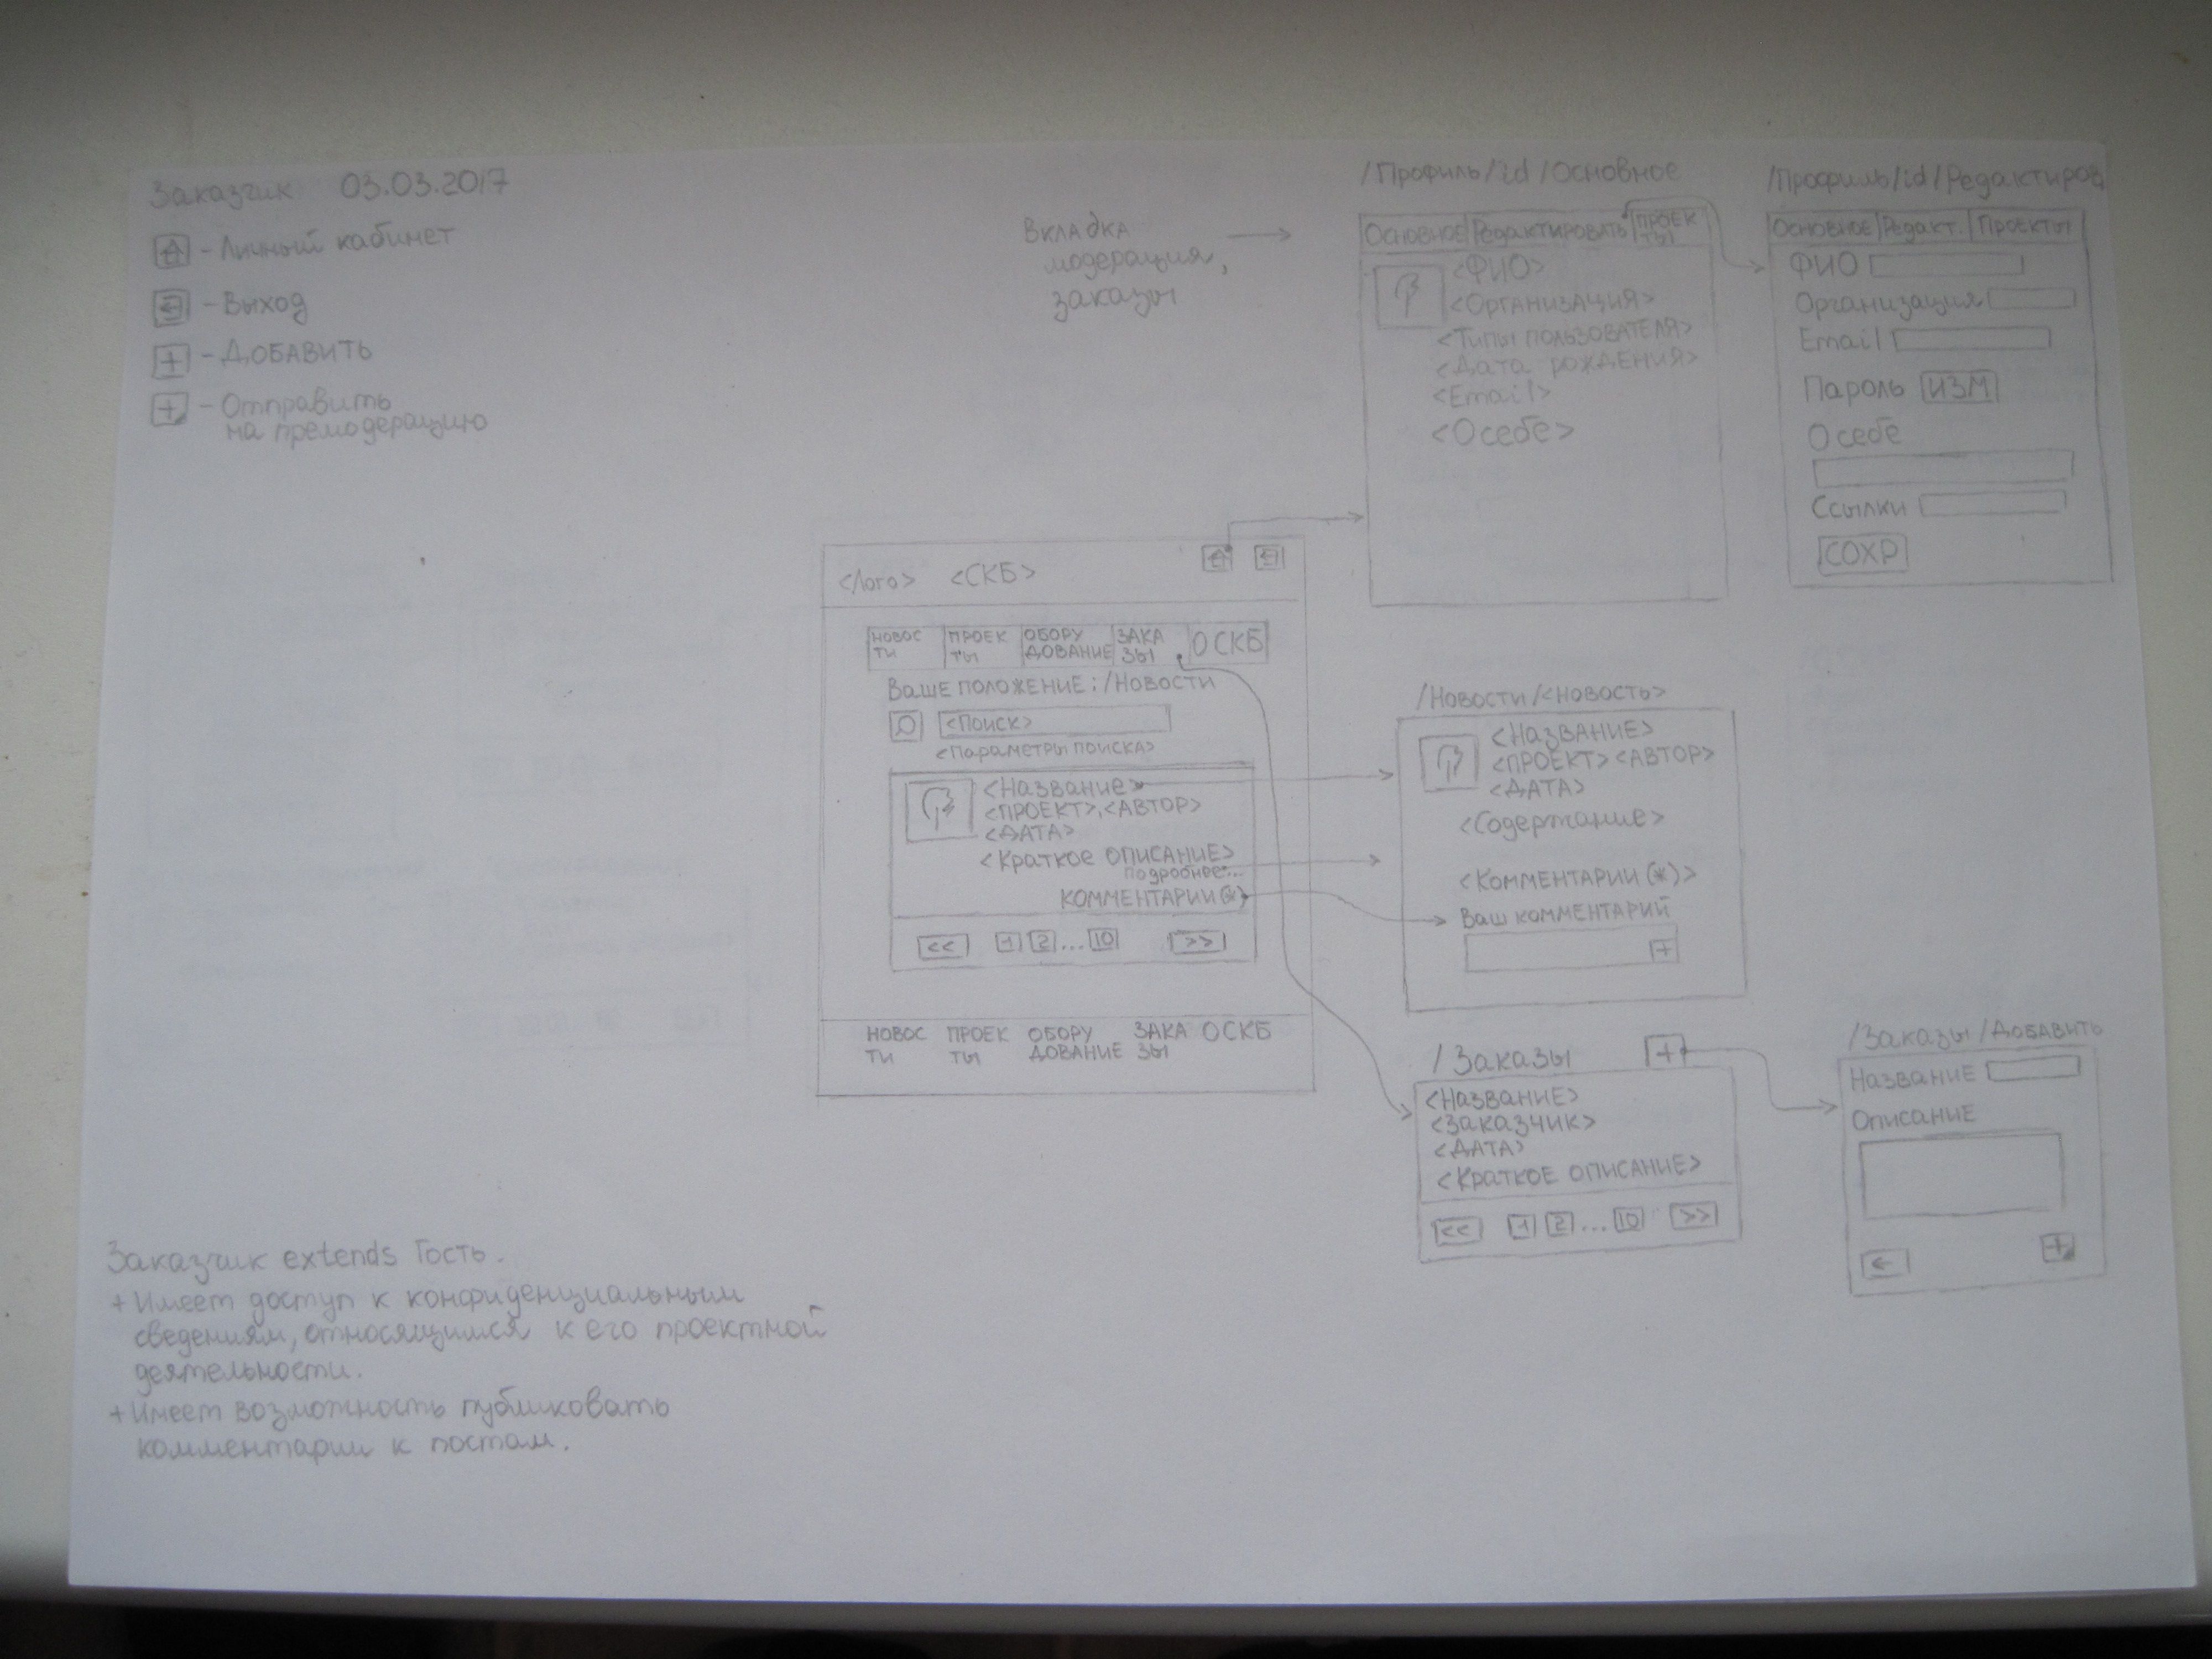 Заказчик 03.03.2017
- Личный кабинет
- Выход
+ - ДОБАВИТЬ
+ - Отправить
на премодерацию
Вкладка
модерация,
заказы
/Профиль/id/Основное
Основное Редактировать ПРОЕК
ТЫ
<ФИО>
<Организация>
<Типы пользователя>
<Дата рождения>
<Email>
<О себе>
/Профиль/id/Редактиров
Основное Редакт. Проекты
ФИО
Организация
Email
Пароль ИЗМ
О себе
Ссылки
СОХР
<Лого> <СКБ>
НОВОС ПРОЕК ОБОРУ ЗАКА О СКБ
ТИ ТЫ ДОВАНИЕ ЗЫ
Ваше положение: /Новости
<Поиск>
<Параметры поиска>
<Название>
<ПРОЕКТ>, <АВТОР>
<ДАТА>
<Краткое описание>
подробнее...
КОММЕНТАРИИ(*)
<< 1 2 ... 10 >>
НОВОС ПРОЕК ОБОРУ ЗАКА О СКБ
ТИ ТЫ ДОВАНИЕ ЗЫ
/Новости/<Новость>
<Название>
<ПРОЕКТ> <АВТОР>
<ДАТА>
<Содержание>
<Комментарии(*)>
Ваш комментарий
+
/Заказы +
<Название>
<Заказчик>
<ДАТА>
<Краткое описание>
<< 1 2 ... 10 >>
/Заказы/Добавить
Название
Описание
← +
Заказчик extends Гость.
+ Имеет доступ к конфиденциальным
сведениям, относящимся к его проектной
деятельности.
+ Имеет возможность публиковать
комментарии к постам.